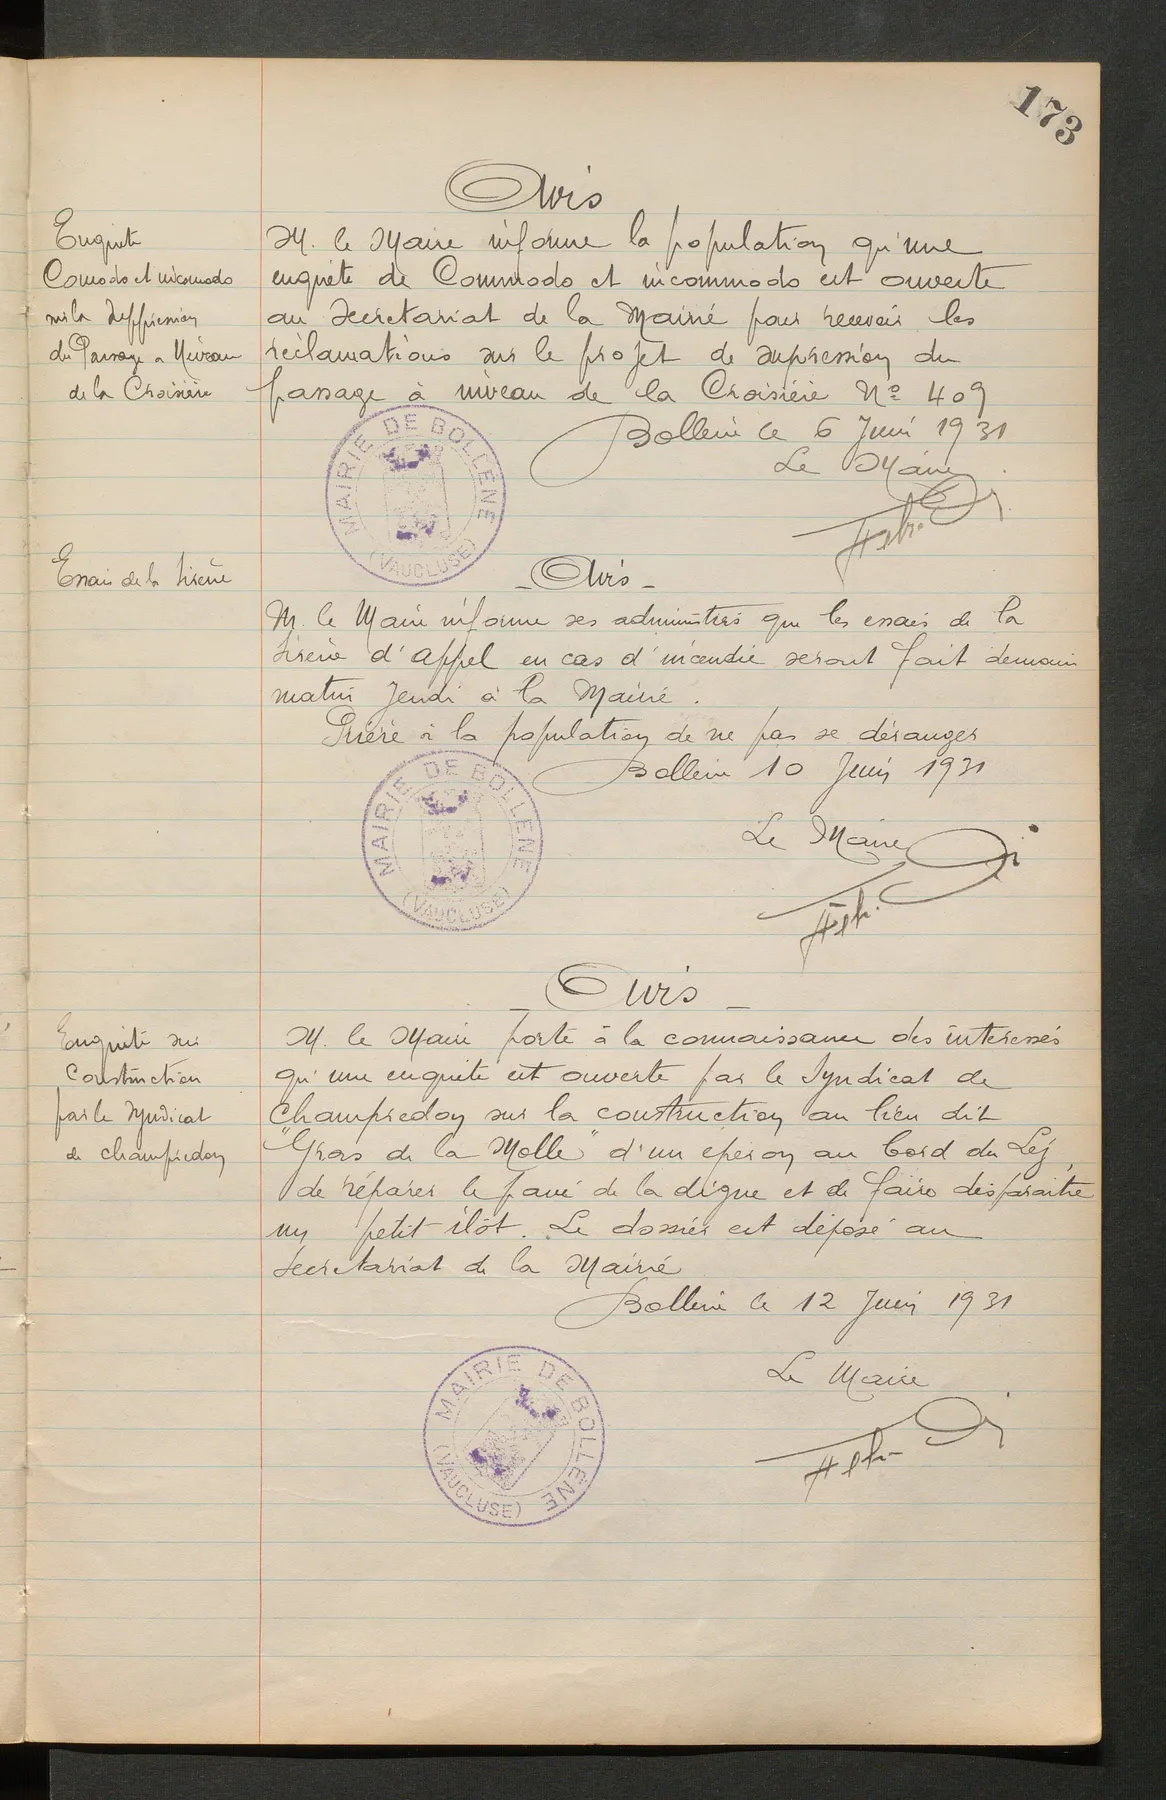 173
Avis
Enquete
Comodo et incomodo
sur la suppression
du Passage a Niveau
de la Croisière
M. le Maire informe la population qu'une
enquête de Commodo et incommodo est ouverte
au Secretariat de la Mairie pour recevoir les
réclamations sur le projet de supression du
passage à niveau de la Croisière N° 409
Bollène le 6 Juin 1931
Le Maire
MAIRIE DE BOLLÈNE
(VAUCLUSE)
Essais de la Sirène
- Avis -
M. le Maire informe ses administrés que les essais de la
Sirène d'appel en cas d'incendie seront fait demain
matin Jeudi à la Mairie.
Prière à la population de ne pas se déranger
Bollène 10 Juin 1931
Le Maire
MAIRIE DE BOLLÈNE
(VAUCLUSE)
- Avis -
Enquête sur
Construction
par le Syndicat
de Champredon
M. le Maire porte à la connaissance des intéressés
qu'une enquête est ouverte par le Syndicat de
Champredon sur la construction au lieu dit
"Gras de la Molle" d'un eperon au bord du Lez,
de réparer le pavé de la digue et de faire disparaitre
un petit ilôt. Le dossier est déposé au
Secretariat de la Mairie
Bollène le 12 Juin 1931
Le Maire
MAIRIE DE BOLLÈNE
(VAUCLUSE)